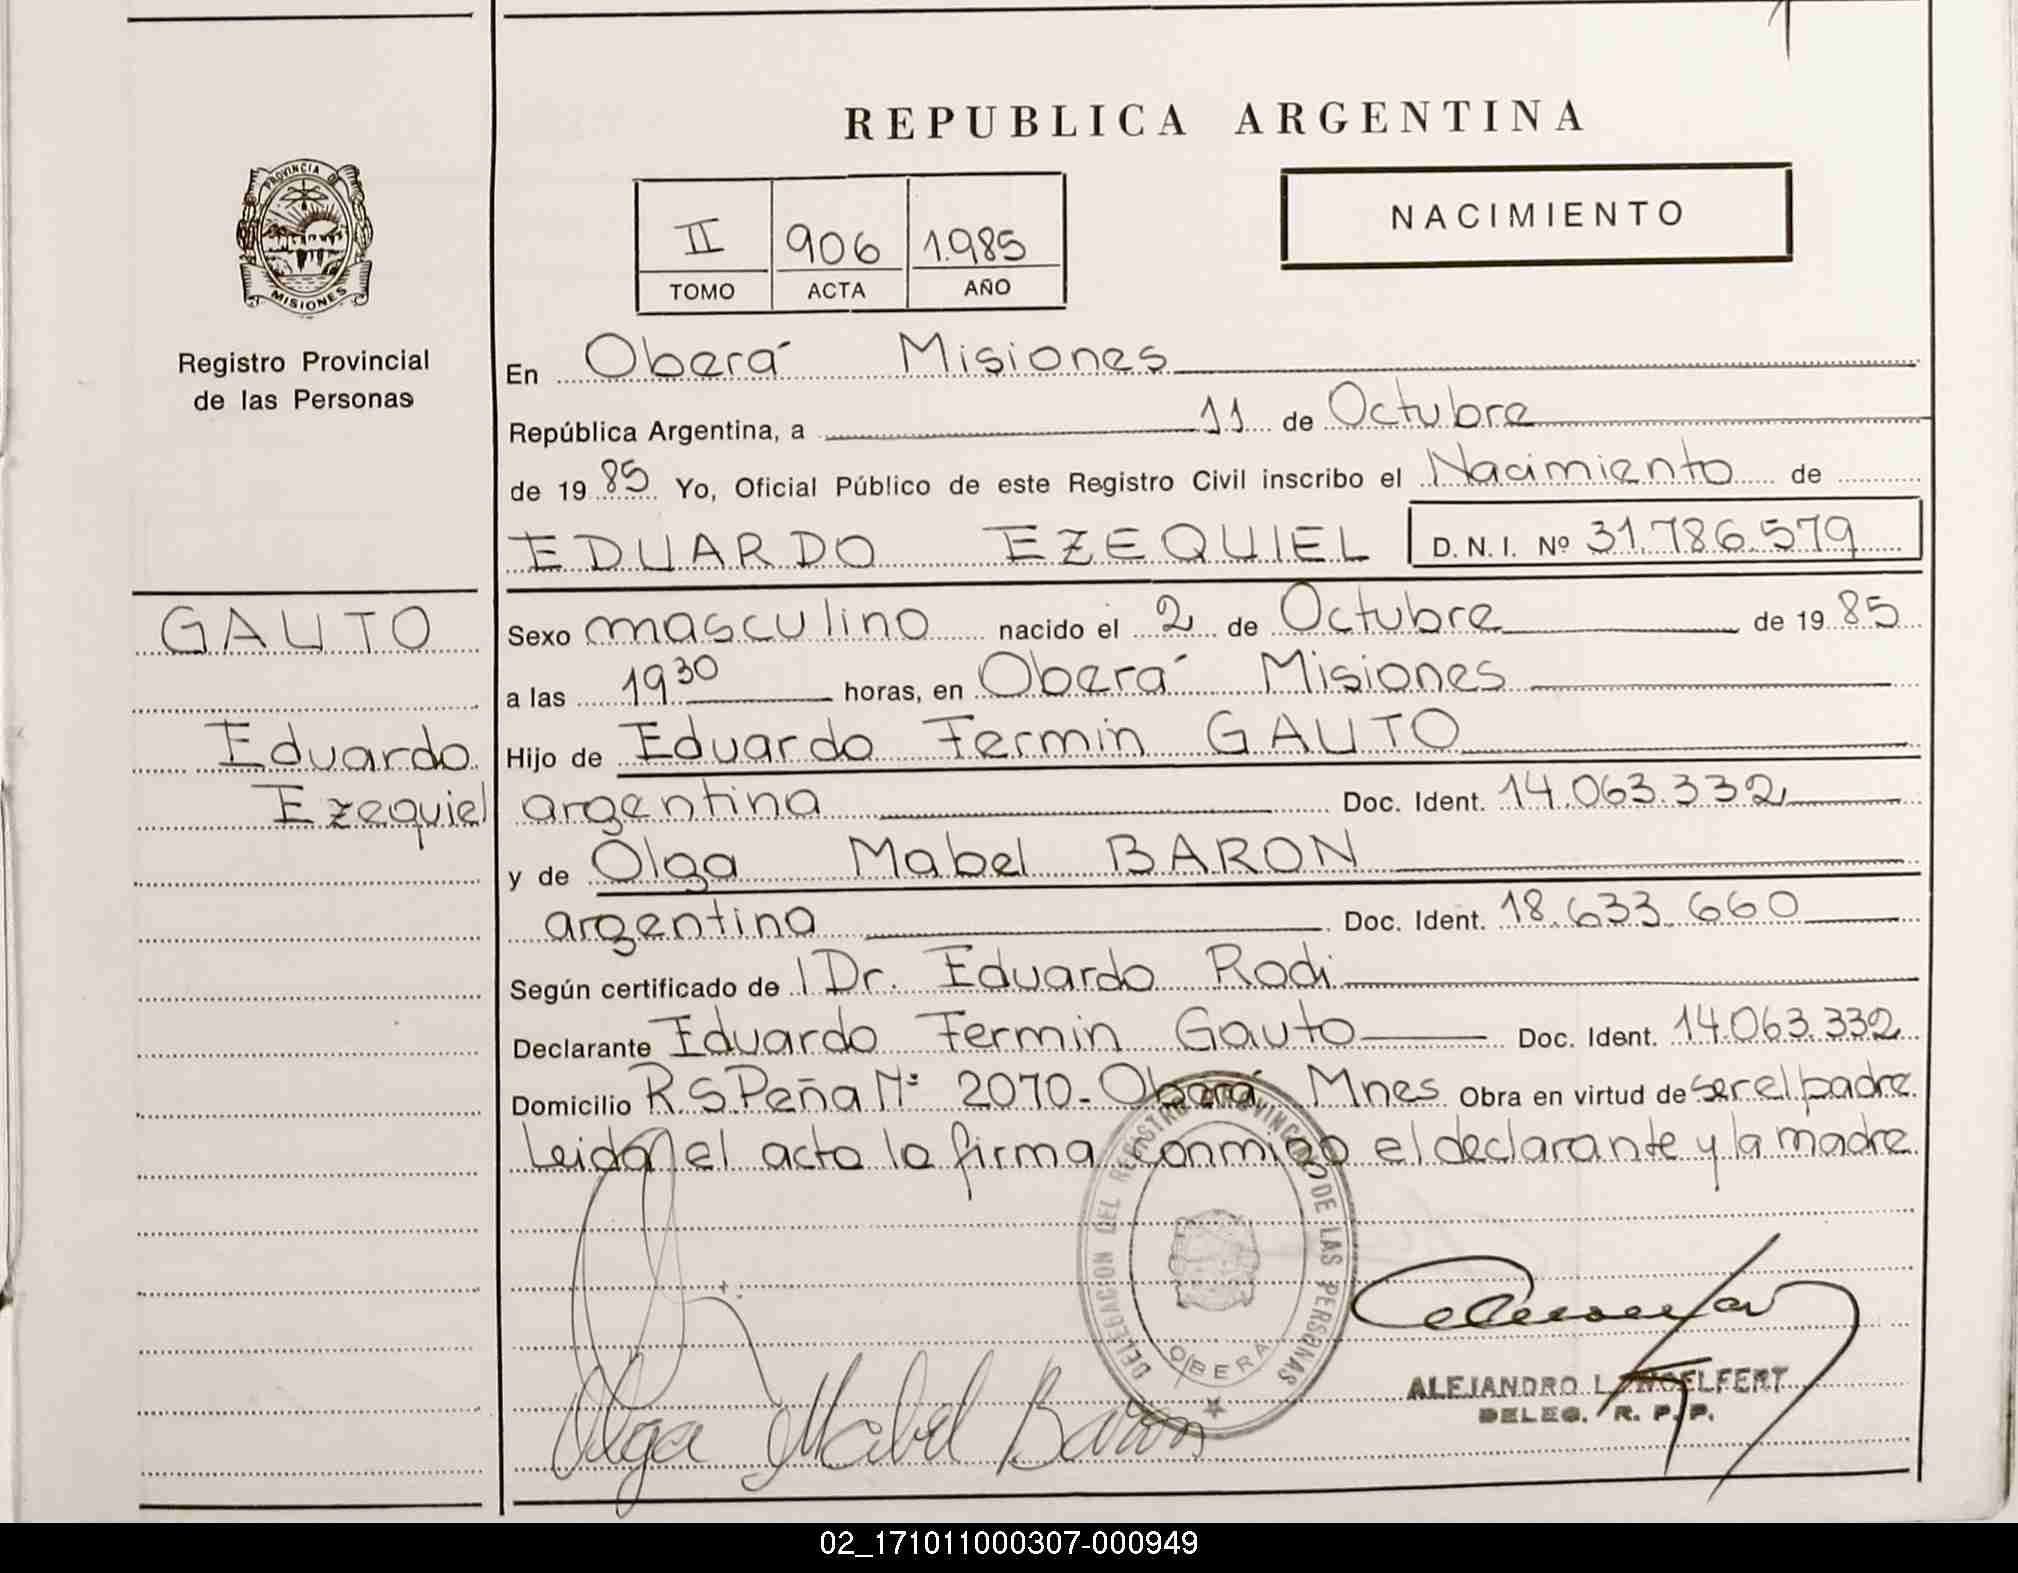 REPUBLICA ARGENTINA
PROVINCIA DE
MISIONES
Registro Provincial
de las Personas
II 906 1.985
TOMO ACTA AÑO
NACIMIENTO
En Oberá Misiones
República Argentina, a 11 de Octubre
de 19 85 Yo, Oficial Público de este Registro Civil inscribo el Nacimiento de
EDUARDO EZEQUIEL D. N. I. Nº 31.786.579
GAUTO
Eduardo
Ezequiel
Sexo masculino nacido el 2 de Octubre de 19 85
a las 19 30 horas, en Oberá Misiones
Hijo de Eduardo Fermin GAUTO
argentina Doc. Ident. 14.063.332
y de Olga Mabel BARON
argentina Doc. Ident. 18.633.660
Según certificado de Dr. Eduardo Rodi
Declarante Eduardo Fermin Gauto Doc. Ident. 14.063.332
Domicilio R.S.Peña Nº 2070 - Oberá Mnes Obra en virtud de ser el padre
Leida el acta la firma conmigo el declarante y la madre
DELEGACION DEL REGISTRO PROVINCIAL DE LAS PERSONAS
OBERA
Olga Mabel Baron
ALEJANDRO
DELEG. R. P. P.
02_171011000307-000949